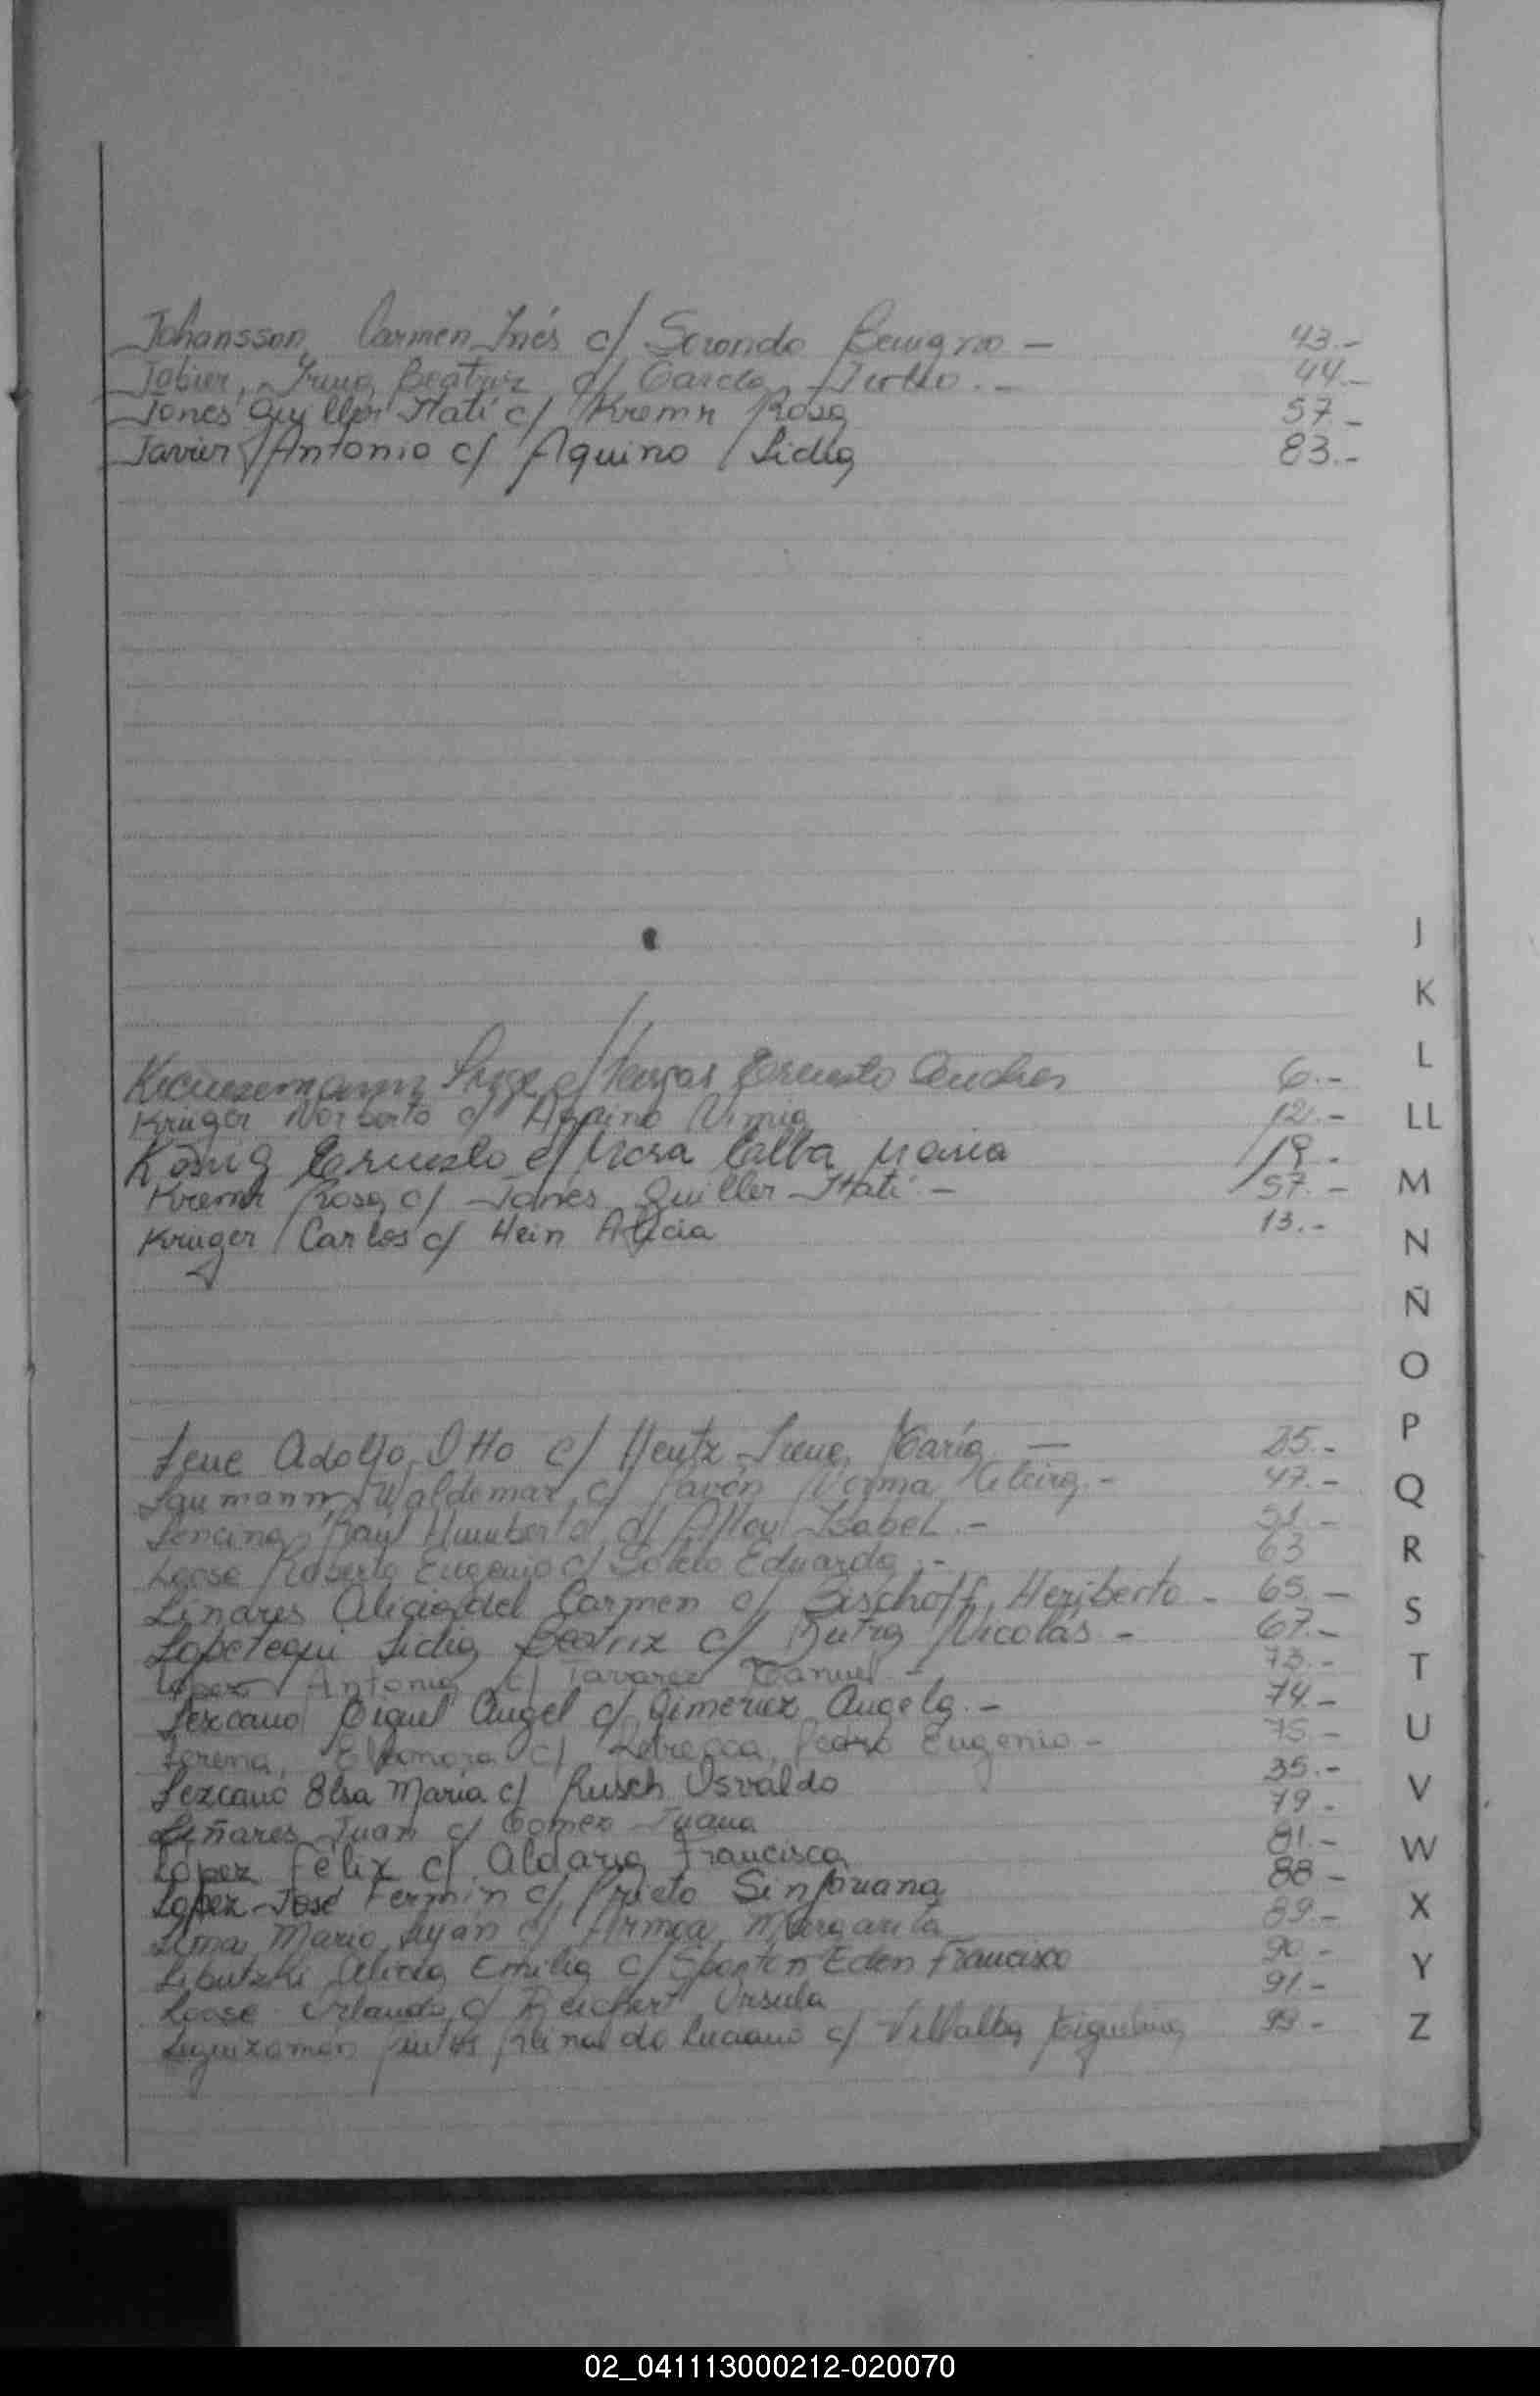 Johansson, Carmen Inés c/ Sorondo Benigno — 43.-
Beatriz c/ García 44.-
Jones Guiller Itatí c/ Kremr Rosa 57.-
Javier Antonio c/ Aquino Lidia 83.-
J
K
L
c/ Ernesto Andres 6.-
LL
Krüger Norberto c/ Aquino 12.-
König Ernesto c/ Mora Elba María 19.-
M
Kremr Rosa c/ Jones Guiller Itatí - 57.-
Krüger Carlos c/ Hein Alicia 13.-
N
Ñ
O
P
Adolfo Otto c/ Hentz Irene María — 25.-
Laumann, Waldemar c/ Pavón Norma 47.-
Q
Lencina, Raúl Humberto c/ Isabel.- 51.-
Loose Roberto Eugenio c/ Sotelo Eduarda.- 63
R
Linares Alicia del Carmen c/ Bischoff, Heriberto - 65.-
S
Lopetequi Lidia Beatriz c/ Dutra Nicolás - 67.-
López Antonia c/ Tavarez Manuel - 73.-
T
Lezcano Miguel Angel c/ Gimenez Angela.- 74.-
U
Eleonora c/ Pedro Eugenio - 75.-
Lezcano Elsa María c/ Rusch Osvaldo 35.-
V
Liñares Juan c/ Gomez Juana 79.-
López Félix c/ Aldaria Francisca 81.-
W
López José Fermín c/ Prieto Sinforiana 88-
X
Lima, Mario c/ Armoa, Margarita 89.-
Alicia Emilia c/ Eden Francisco 90.-
Y
Loose Orlando c/ Reichert Ursula 91.-
Luciano c/ Villalba 99.-
Z
02_041113000212-020070